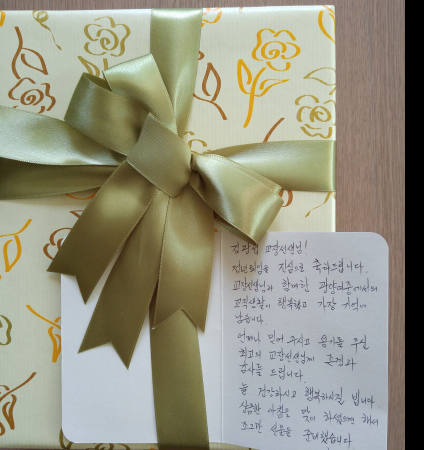 교장선생님!
정년퇴임을 진심으로 축하드립니다.
교장선생님과 함께한 광양여중에서의
교직생활이 행복했고 가장 기억에
남습니다.
언제나 믿어 주시고 용기를 주신
최고의 교장선생님께 존경과
감사를 드립니다.
늘 건강하시고 행복하시길 빕니다
상큼한 아침을 맞이 하셨으면 해서
조그만 선물을 준비했습니다